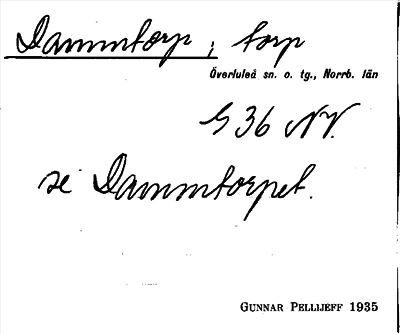 Dammtorp, torp
Överluleå sn. o. tg., Norrb. län
G 36 NV.
se Dammtorpet.
GUNNAR PELLIJEFF 1935